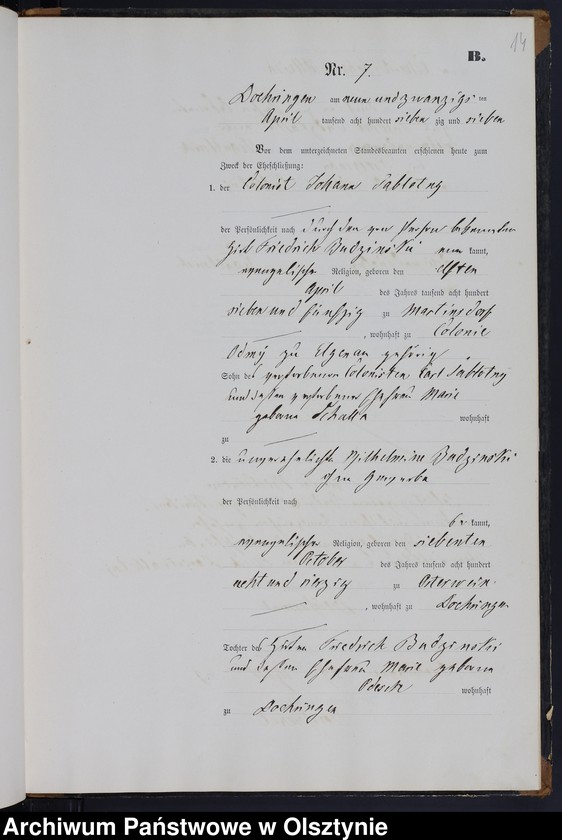 14
B.
Nr. 7.
Doehringen am neun und zwanzigsten
April tausend acht hundert sieben zig und sieben
Vor dem unterzeichneten Standesbeamten erschienen heute zum
Zweck der Eheschließung:
1. der Colonist Johann Sablotny
der Persönlichkeit nach durch den von Person bekannten
Hirt Friedrich Budzinski kannt,
evangelischer Religion, geboren den elften
April des Jahres tausend acht hundert
sieben und fünfzig zu Martinsdorf
, wohnhaft zu Colonie
zu Elgenau gehörig
Sohn des verstorbenen Colonisten Carl Sablotny
und dessen verstorbene Ehefrau Marie
geborne wohnhaft
zu
2. die unverehelichte Wilhelmine Budzinski
ohne Gewerbe
der Persönlichkeit nach
be kannt,
evangelischer Religion, geboren den siebenten
October des Jahres tausend acht hundert
acht und vierzig zu Osterwein
, wohnhaft zu Doehringen
Tochter des Hirten Friedrich Budzinski
und dessen Ehefrau Marie geborne
wohnhaft
zu Doehringen
Archiwum Państwowe w Olsztynie